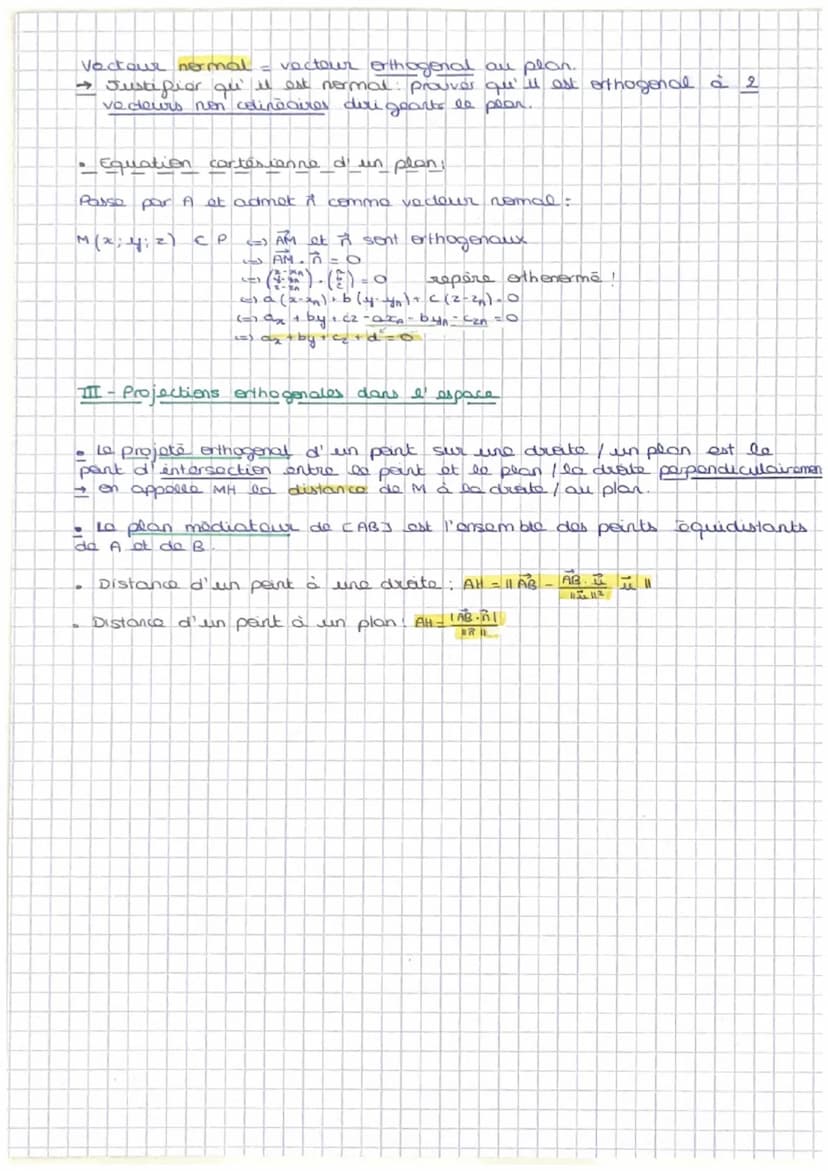 Vecteur normal = vecteur orthogonal au plan.
→ Justifier qu'il est normal : prouver qu'il est orthogonal à 2
vecteurs non colinéaires dirigeants le plan.
• Equation cartésienne d'un plan :
Passe par A et admet n⃗ comme vecteur normal :
M(x; y; z) ⊂ P ⇔ AM⃗ et n⃗ sont orthogonaux
⇔ AM⃗ . n⃗ = 0
⇔ (x-xA y-yA z-zA) . (a b c) = 0 repère orthonormé !
⇔ a(x-xA) + b(y-yA) + c(z-zA) = 0
⇔ ax + by + cz - axA - byA - czA = 0
⇔ ax + by + cz + d = 0
III - Projections orthogonales dans l'espace
• Le projeté orthogonal d'un point sur une droite / un plan est le
point d'intersection entre le point et le plan / la droite perpendiculairemen
→ on appelle MH la distance de M à la droite / au plan.
• Le plan médiateur de [AB] est l'ensemble des points équidistants
de A et de B.
• Distance d'un point à une droite : AH = ||AB⃗ - AB⃗ . u⃗ / ||u⃗||² u⃗||
• Distance d'un point à un plan : AH = |AB⃗ . n⃗| / ||n⃗||